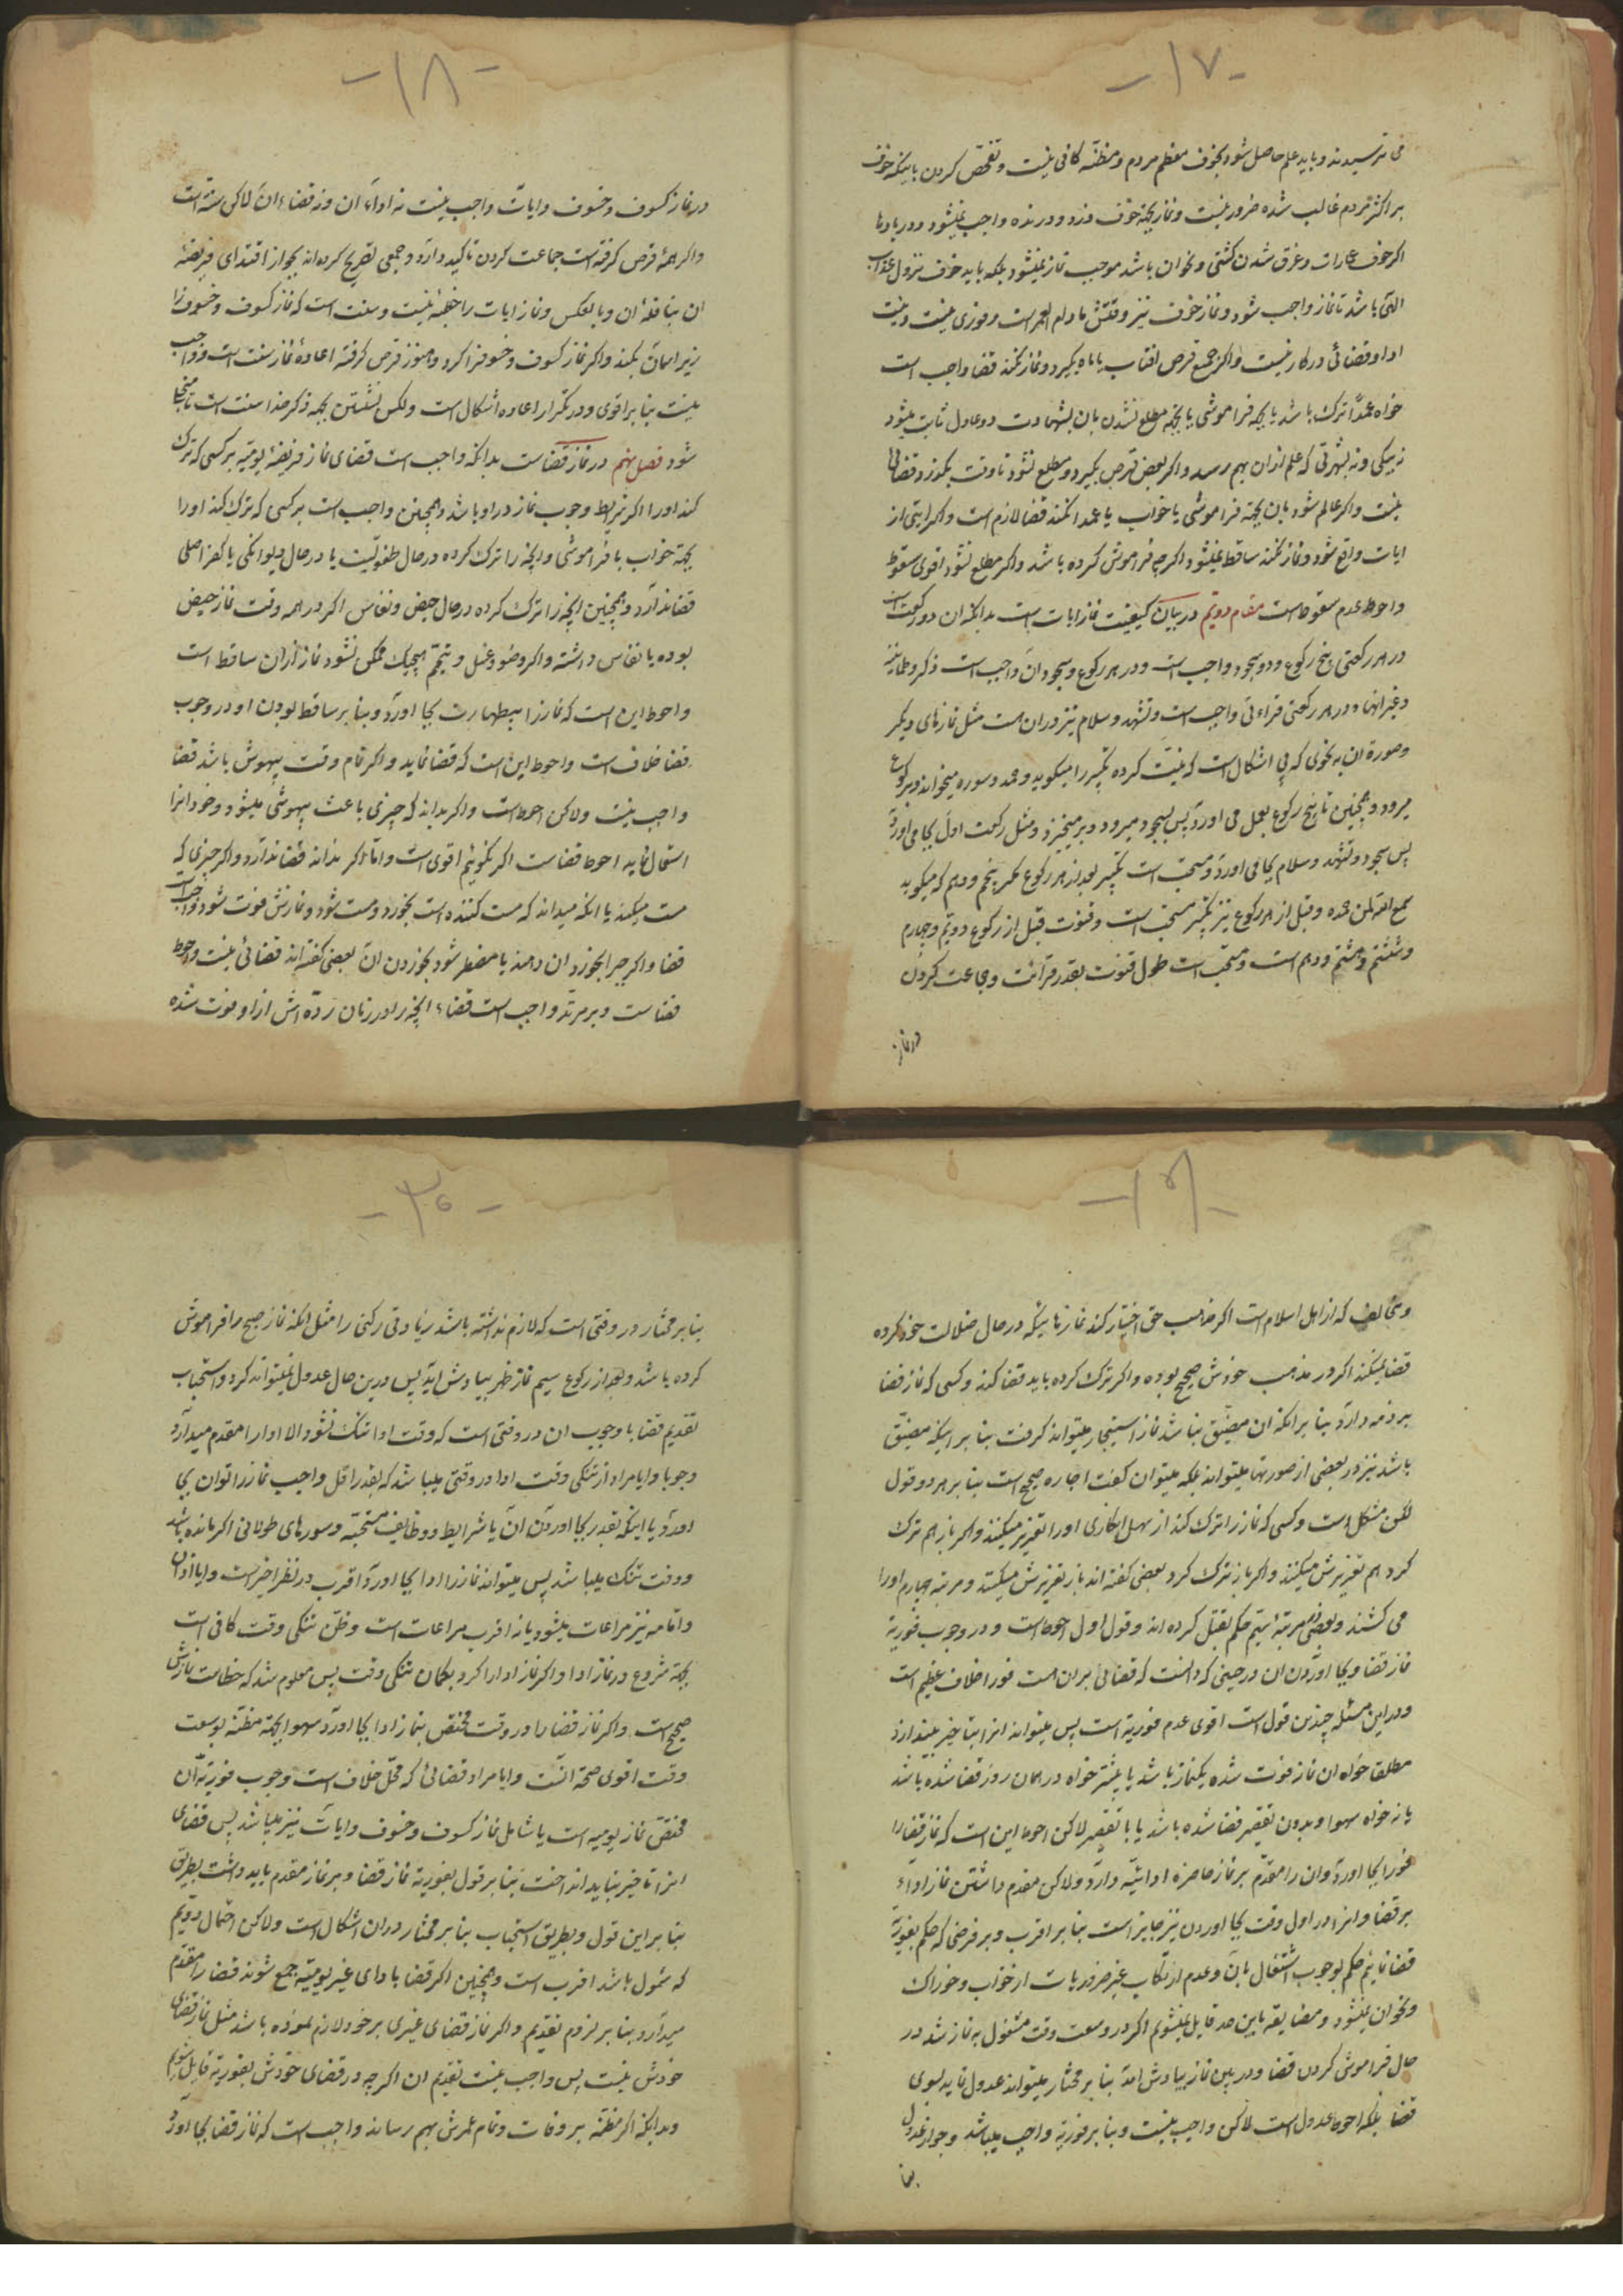 -۱۷-
می‌ترسیدند و باید علم حاصل شود بخوف معظم مردم و مظنه کافی نیست و تفحص کردن باینکه خوف
بر اکثر مردم غالب شده ضرور نیست و نماز بجهة خوف دزد و درنده واجب نمیشود و در بادها
اکر خوف عمارات و غرق شدن کشتی و نحو ان باشد موجب نماز نمیشود بلکه باید خوف نزول عذاب
الهی باشد تا نماز واجب شود و نماز خوف نیز وقتش مادام العمر است و فوری نیست و نیت
ادا و قضائی در کار نیست و اکر جمیع قرص افتاب یا ماه بکیرد و نماز نکند قضا واجب است
خواه عمداً ترک باشد یا بجهة فراموشی یا بجهة مطلع نشدن بان بشهادت دو عادل ثابت میشود
نه بیکی و نه بشهرتی که علم از ان بهم نرسد و اکر بعض قرص بکیرد و مطلع نشود تا وقت بکذرد قضائی
نیست و اکر عالم شود بان بجهة فراموشی یا خواب یا عمدا نکند قضا لازم است و اکر ایتی از
ایات واقع شود و نماز نکند ساقط نمیشود اکرچه فراموش کرده باشد و اکر مطلع نشود اقوی سقوط
و احوط عدم سقوط است مقام دویم در بیان کیفیت نماز ایات است بدانکه ان دو رکعت است
در هر رکعتی پنج رکوع و دو سجود واجب است و در هر رکوع و سجود ان واجب است ذکر و طمانینه
و غیر انها و در هر رکعتی قراءتی واجب است و تشهد و سلام نیز در ان هست مثل نمازهای دیکر
و صورة ان به نحوی که بی اشکال است که نیت کرده تکبیر را میکوید و حمد و سوره میخواند و برکوع
میرود و همچنین تا پنج رکوع بعمل می اورد پس بسجود میرود و برمیخیزد و مثل رکعت اول بجا می اورد
پس سجود و تشهد و سلام بجا می اورد و مستحب است تکبیر بعد از هر رکوع مکر پنجم و دهم که میکوید
سمع الله لمن حمده و قبل از هر رکوع نیز تکبیر مستحب است و قنوت قبل از رکوع دویم و چهارم
و ششم و هشتم و دهم است و مستحب است طول قنوت بقدر قرائت و جماعت کردن
در نماز
-۱۸-
در نماز کسوف و خسوف و ایات واجب نیست نه اداء ان و نه قضاء ان لاکن سنة است
و اکر همهٔ قرص کرفته است جماعت کردن تاکید دارد و جمعی تصریح کرده اند بجواز اقتدای فریضهٔ
ان بنافلهٔ ان و بالعکس و نماز ایات را خطبهٔ نیست و سنت است که نماز کسوف و خسوف را
زیر اسمان بکند و اکر نماز کسوف و خسوف را کرد و هنوز قرص کرفته اعادهٔ نماز سنت است و واجب
نیست بنا بر اقوی و در تکرار اعاده اشکال است ولکن نشستن بجهة ذکر خدا سنت است تا منجلی
شود فصل نهم در نماز قضاست بدانکه واجب است قضای نماز فریضهٔ یومیه بر کسی که ترک
کند او را اکر شرایط وجوب نماز در او باشد و همچنین واجب است بر کسی که ترک کند او را
بجهة خواب یا فراموشی و انچه را ترک کرده در حال طفولیت یا در حال دیوانکی یا کفر اصلی
قضا ندارد و همچنین انچه را ترک کرده در حال حیض و نفاس اکر در همه وقت نماز حیض
بوده یا نفاس داشته و اکر وضو و غسل و تیمم هیچیک ممکن نشود نماز از ان ساقط است
و احوط این است که نماز را بیطهارت بجا اورد و بنا بر ساقط بودن او در وجوب
قضا خلاف است و احوط این است که قضا نماید و اکر تمام وقت بیهوش باشد قضا
واجب نیست ولاکن احوط است و اکر بداند که چیزی باعث بیهوشی میشود و خود انرا
استعمال نماید احوط قضاست اکر نکوئیم اقوی است و اما اکر نداند قضا ندارد و اکر چیزی که
مست میکند یا انکه میداند که مست کننده است بخورد و مست شود و نمازش فوت شود واجب است
قضا و اکر جبرا بخورد ان دهند یا مضطر شود بخوردن ان بعضی کفته اند قضائی نیست و احوط
قضاست و بر مرتد واجب است قضاء انچه را در زمان ردّه اش از او فوت شده
-۱۹-
و مخالف که از اهل اسلام است اکر مذهب حق اختیار کند نمازهائیکه در حال ضلالت خود کرده
قضا نمیکند اکر در مذهب خودش صحیح بوده و اکر ترک کرده باید قضا کند و کسی که نماز قضا
بر ذمه دارد بنا بر انکه ان مضیق نباشد نماز استیجار میتواند کرفت بنا بر اینکه مضیق
باشد نیز در بعضی از صورتها میتواند بلکه میتوان کفت اجاره صحیح است بنا بر هر دو قول
لکن مشکل است و کسی که نماز را ترک کند از سهل انکاری او را تعزیر میکنند و اکر باز هم ترک
کرد هم تعزیرش میکنند و اکر باز ترک کرد بعضی کفته اند باز تعزیرش میکنند و مرتبه چهارم او را
می کشند و بعضی مرتبهٔ سیم حکم بقتل کرده اند و قول اول احوط است و در وجوب فوریة
نماز قضا و بجا اوردن ان در حینی که دانست که قضائی بر ان هست فورا خلاف عظیم است
و در این مسئله چندین قول است اقوی عدم فوریة است پس میتواند انرا بتاخیر بیندازد
مطلقا خواه ان نماز فوت شده یکنماز باشد یا بیشتر خواه در همان روز قضا شده باشد
یا نه خواه سهوا و بدون تقصیر قضا شده باشد یا با تقصیر لاکن احوط این است که نماز قضا را
فورا بجا اورد و ان را مقدم بر نماز حاضره ادائیه دارد ولاکن مقدم داشتن نماز اداء
بر قضا و انرا در اول وقت بجا اوردن نیز جایز است بنا بر اقرب و بر فرضی که حکم بفوریة
قضا نمائیم حکم بوجوب اشتغال بان و عدم ارتکاب غیر ضروریات از خواب و خوراک
و نحو ان نمیشود و مضایقه باین حد قایل نمیشویم اکر در وسعت وقت مشغول به نماز شد در
حال فراموشی کردن قضا و در بین نماز بیادش امد بنا بر مختار میتواند عدول نماید بسوی
قضا بلکه احوط عدول است لاکن واجب نیست و بنا بر فوریة واجب میباشد و جواز عدول
بنا
-۲۰-
بنا بر مختار در وقتی است که لازم نداشته باشد زیادتی رکنی را مثل انکه نماز صبح را فراموش
کرده باشد و بعد از رکوع سیم نماز ظهر بیادش اید پس درین حال عدول نمیتواند کرد و استحباب
تقدیم قضا با وجوب ان در وقتی است که وقت ادا تنک نشود والا ادا را مقدم میدارد
وجوبا و ایا مراد از تنکی وقت ادا در وقتی میباشد که بقدر اقل واجب نماز را توان بجا
اورد یا اینکه بقدر بجا اوردن ان با شرایط و وظایف مستحبه و سورهای طولانی اکر مانده باشد
و وقت تنک میباشد پس میتواند نماز را ادا بجا اورد اقرب در نظر اخیر است و ایا اذان
و اقامه نیز مراعات میشود یا نه اقرب مراعات است و ظن تنکی وقت کافی است
بجهة شروع در نماز ادا و اکر نماز ادا را کرد بکمان تنکی وقت پس معلوم شد که خطاست نمازش
صحیح است و اکر نماز قضا را در وقت مختص بنماز ادا بجا اورد سهوا بجهة مظنه بوسعت
وقت اقوی صحة انست و ایا مراد قضائی که محل خلاف است وجوب فوریة ان
مختص نماز یومیه است یا شامل نماز کسوف و خسوف و ایات نیز میباشد پس قضای
انرا تاخیر نباید انداخت بنا بر قول بفوریة نماز قضا و بر نماز مقدم باید داشت بطریق
بنا بر این قول و بطریق استحباب بنا بر مختار در ان اشکال است ولاکن احتمال دویم
که شمول باشد اقرب است و همچنین اکر قضا با ادای غیر یومیه جمع شوند قضا را مقدم
میدارد بنا بر لزوم تقدیم و اکر نماز قضای غیری بر خود لازم نموده باشد مثل نماز قضای
خودش نیست پس واجب نیست تقدیم ان اکرچه در قضای خودش بفوریة قایل شویم
و بدانکه اکر مظنه بر وفات و تمام عمرش بهم رساند واجب است که نماز قضا بجا اورد